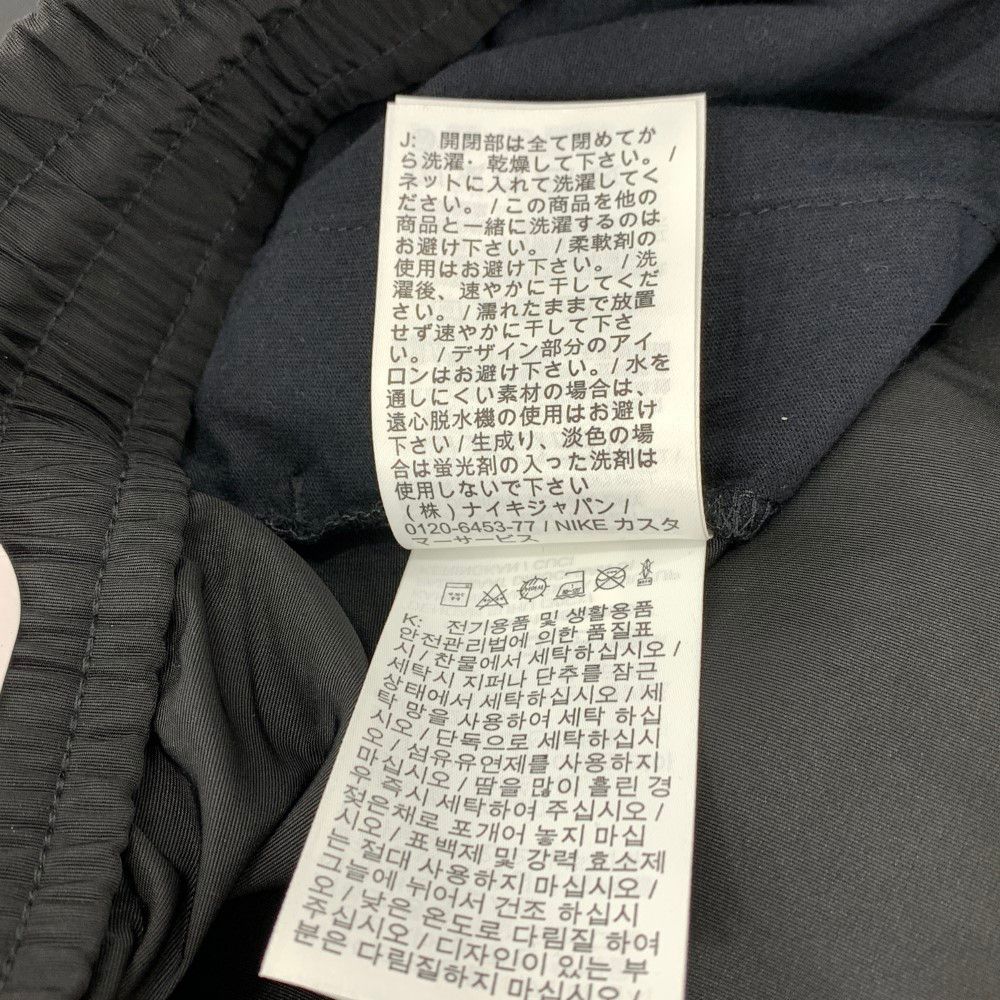 J: 開閉部は全て閉めてか
ら洗濯・乾燥して下さい。 /
ネットに入れて洗濯してく
ださい。 / この商品を他の
商品と一緒に洗濯するのは
お避け下さい。 / 柔軟剤の
使用はお避け下さい。 / 洗
濯後、速やかに干してくだ
さい。 / 濡れたままで放置
せず速やかに干して下さ
い。 / デザイン部分のアイ
ロンはお避け下さい。 / 水を
通しにくい素材の場合は、
遠心脱水機の使用はお避け
下さい / 生成り、淡色の場
合は蛍光剤の入った洗剤は
使用しないで下さい
(株) ナイキジャパン /
0120-6453-77 / NIKE カスタ
マーサービス
K: 전기용품 및 생활용품
안전관리법에 의한 품질표
시 / 찬물에서 세탁하십시오 /
세탁시 지퍼나 단추를 잠근
상태에서 세탁하십시오 / 세
탁 망을 사용하여 세탁 하십
시오 / 단독으로 세탁하십시
오 / 섬유유연제를 사용하지
마십시오 / 땀을 많이 흘린 경
우 즉시 세탁하여 주십시오 /
젖은채로 포개어 놓지 마십
시오 / 표백제 및 강력 효소제
는 절대 사용하지 마십시오 /
그늘에 뉘어서 건조 하십시
오 / 낮은 온도로 다림질 하여
주십시오 / 디자인이 있는 부
분은 다림질하지 마십시오